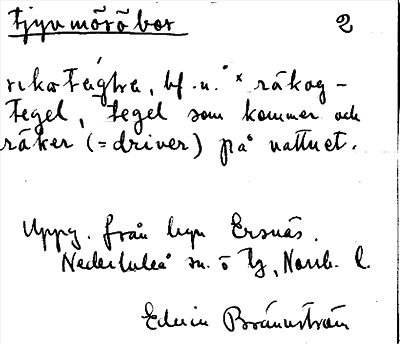 tjuvmörsbor 2
råkog-
tegel, tegel som kommer och
råker (= driver) på vattnet.
Uppg. från byn Ersnäs.
Nederluleå sn. o tg, Norrb. l.
Edvin Brännström